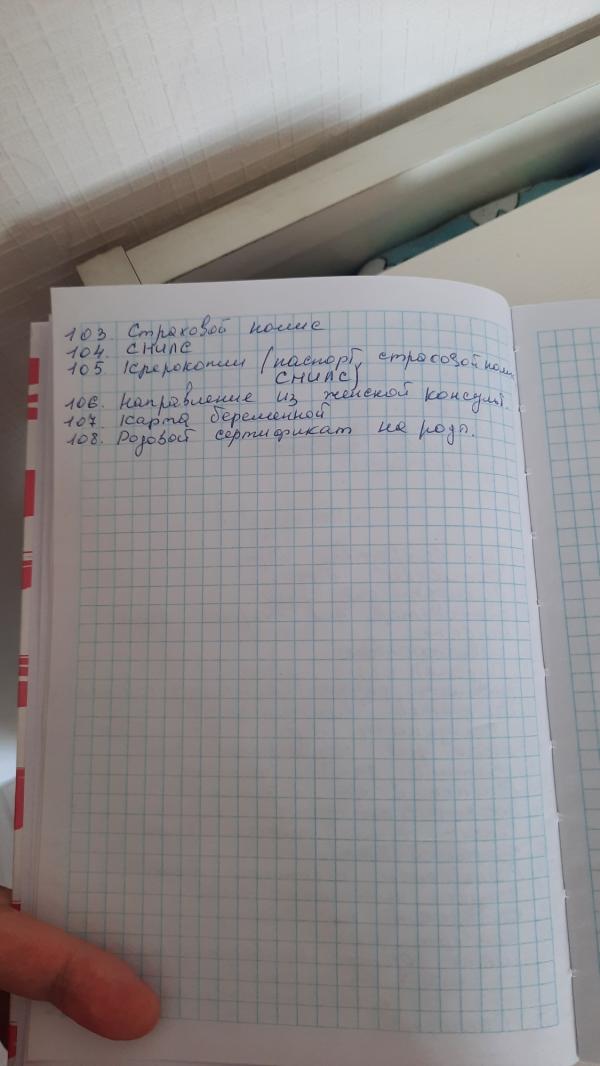 103. Страховой полис
104. СНИЛС
105. Ксерокопии (паспорт, страховой полис
СНИЛС)
106. Направление из женской консульт.
107. Карта беременной
108. Родовой сертификат на родз.